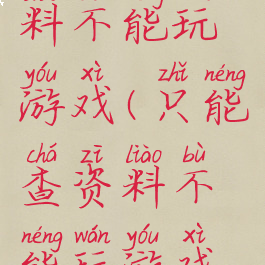 料不能玩
yóu xì zhǐ néng
游戏(只能
chá zī liào bù
查资料不
néng wán yóu xì
能玩游戏